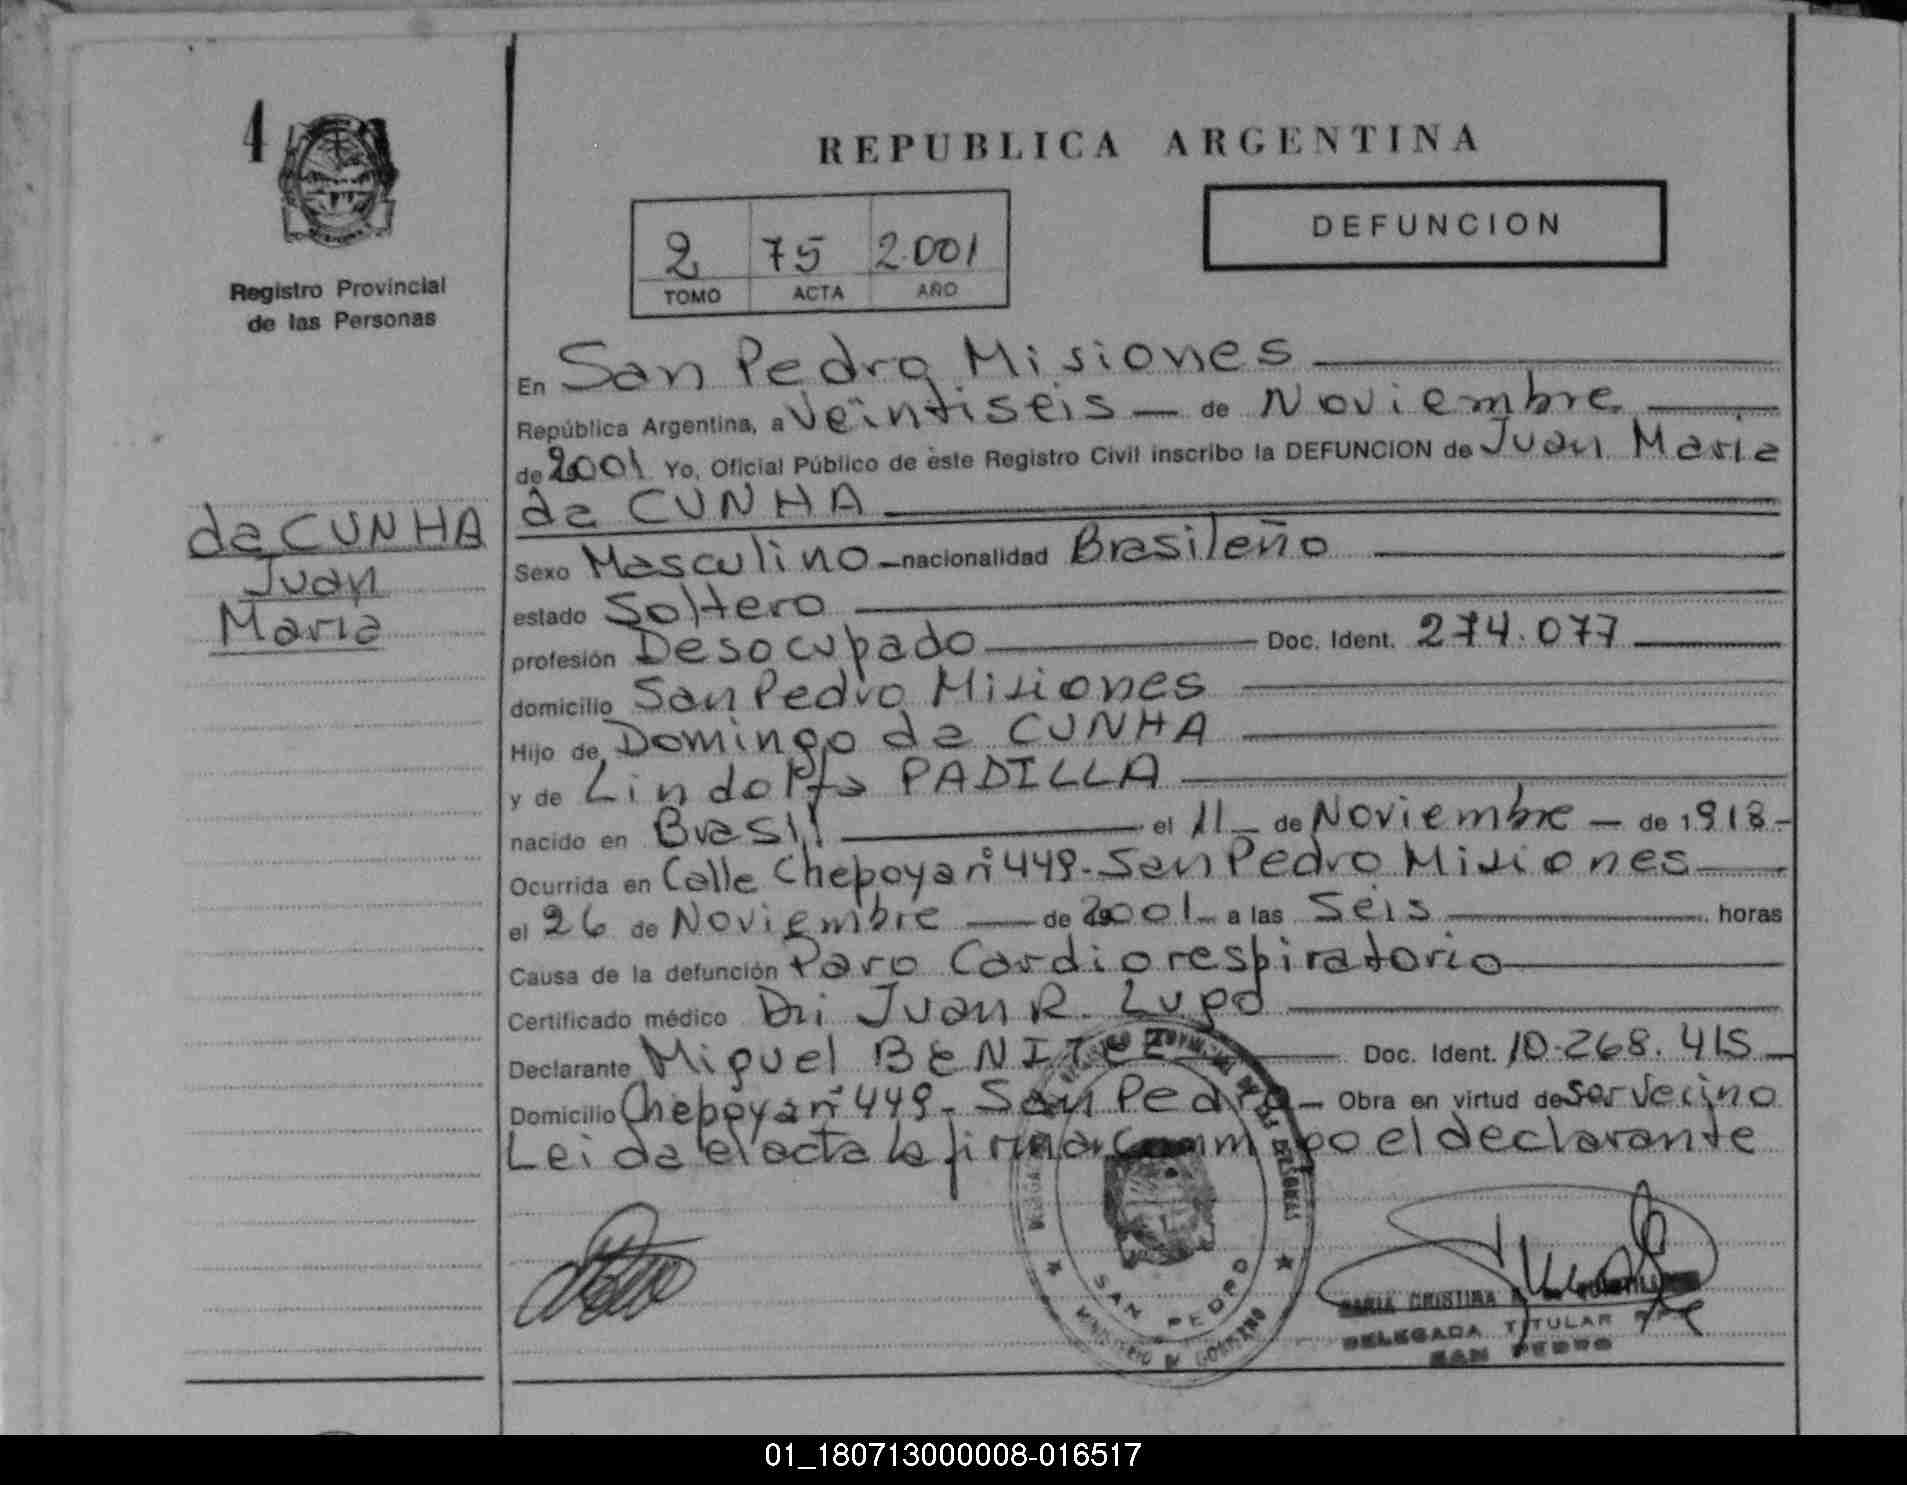 4
REPUBLICA ARGENTINA
DEFUNCION
2 75 2.001
TOMO ACTA AÑO
Registro Provincial
de las Personas
da CUNHA
Juan
Maria
En San Pedro Misiones
República Argentina, a Veintiseis de Noviembre
de 2001 Yo, Oficial Público de este Registro Civil inscribo la DEFUNCION de Juan Maria
da CUNHA
Sexo Masculino nacionalidad Brasileño
estado Soltero
profesión Desocupado Doc. Ident. 274.077
domicilio San Pedro Misiones
Hijo de Domingo da CUNHA
y de Lindolfa PADILLA
nacido en Brasil el 11 de Noviembre de 1918-
Ocurrida en Calle Chepoya nº 449- San Pedro Misiones
el 26 de Noviembre de 2001 a las Seis horas
Causa de la defunción Paro Cardiorespiratorio
Certificado médico Dr: Juan R. Lugo
Declarante Miguel BENITEZ Doc. Ident. 10.268.415
Domicilio Chepoya nº 449- San Pedro Obra en virtud de ser vecino
Leida el acta la firma conmigo el declarante
SAN PEDRO
MINISTERIO DE GOBIERNO
MARIA CRISTINA
DELEGADA TITULAR
SAN PEDRO
01_180713000008-016517